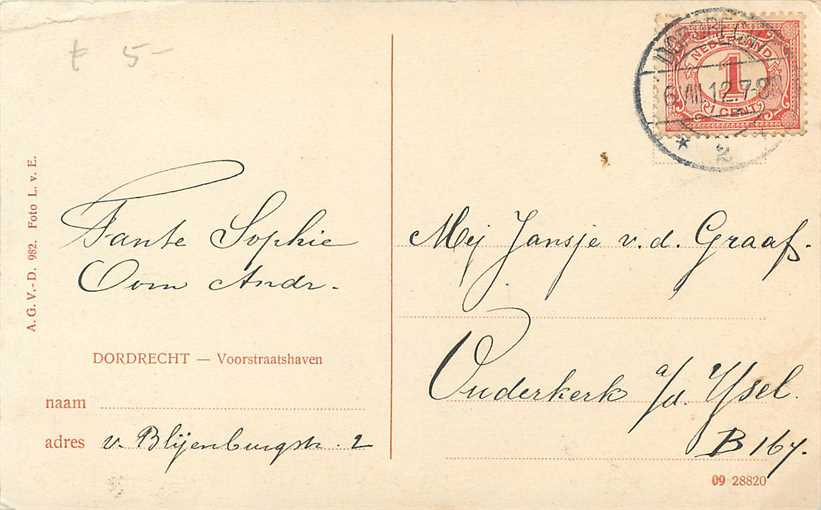 ƒ 5-
A. G. V.-D. 982. Foto L. v. E.
Tante Sophie
Oom Andr.
DORDRECHT — Voorstraatshaven
naam
adres v. Blijenburgstr. 2
DORDRECHT
6 VIII 12 7-8N
* 2
NEDERLAND
1
1 CENT
Mej Jansje v.d. Graaf.
Ouderkerk a/d. IJsel.
B 167.
09 28820